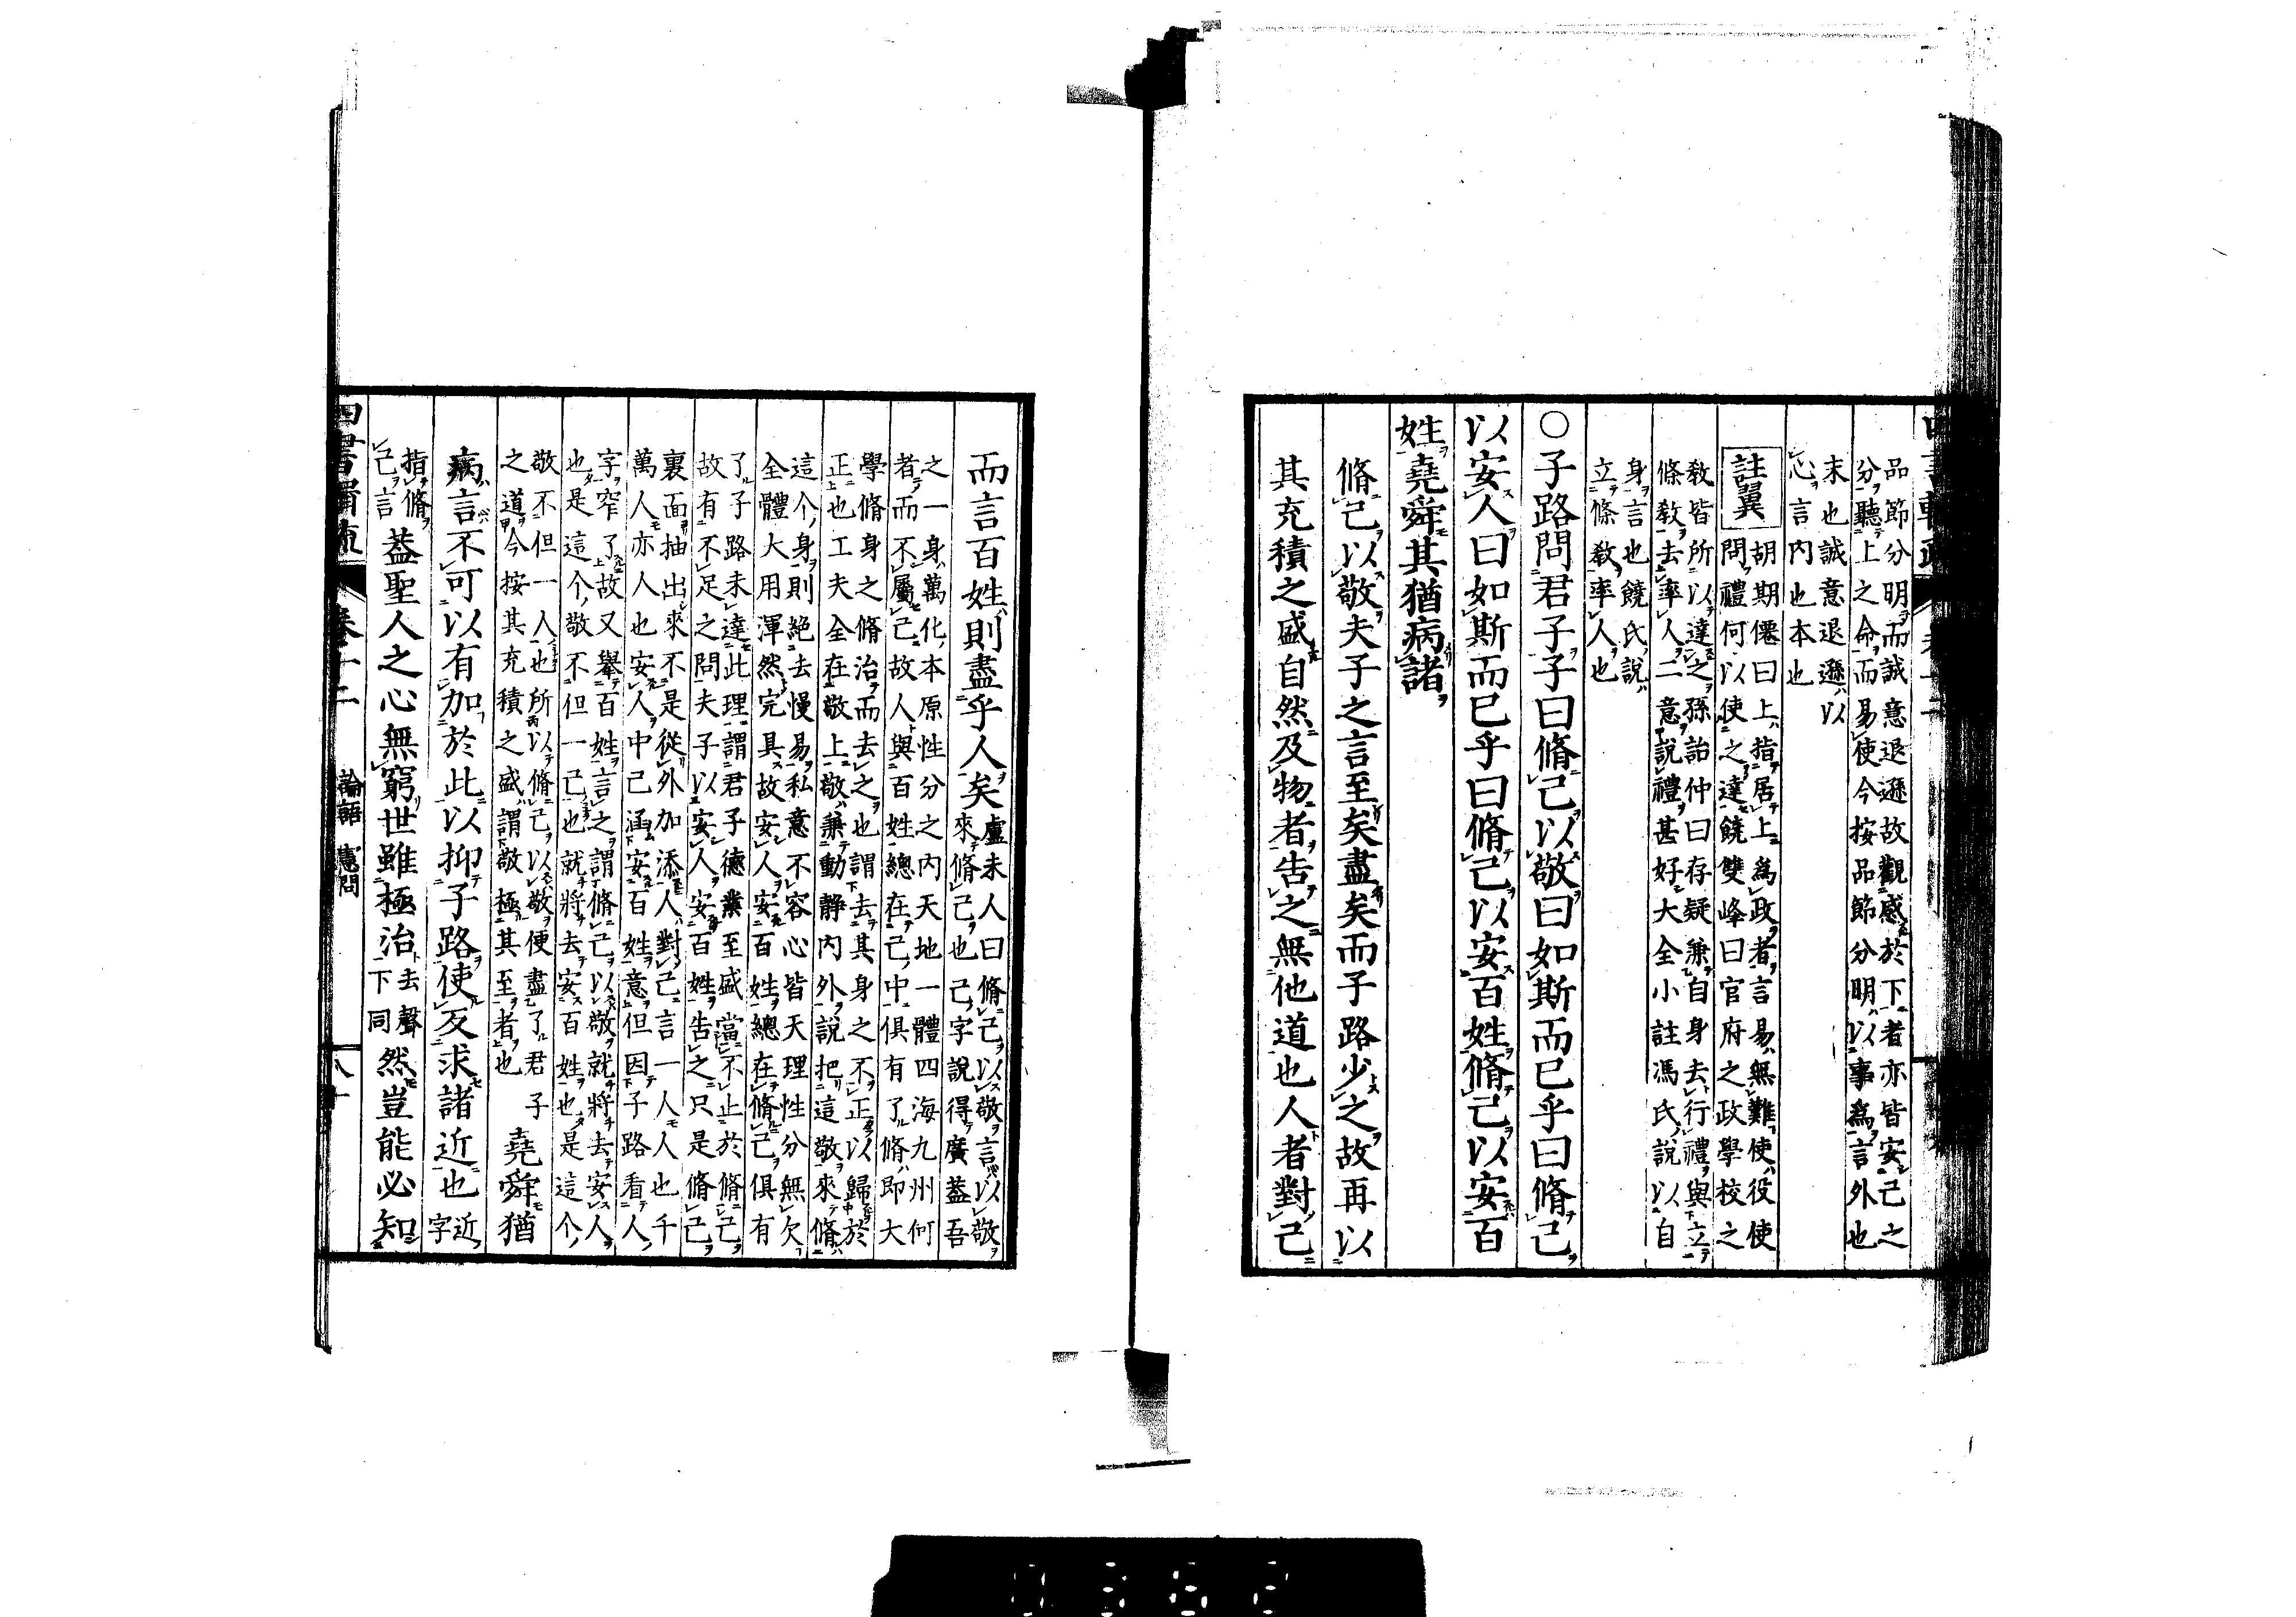 品節分明而誠意退遜故觀感於下者亦皆安己之
分聽上之命而易使今按品節分明以事爲言外也
末也誠意退遜以
心言内也本也
註翼
胡期僊曰上指居上爲政者言易無難使役使
問禮何以使之達饒雙峰曰官府之政學校之
教皆所以達之孫詒仲曰存疑兼自身去行禮與立
條教去率人二意說禮甚好大全小註馮氏說以自
身言也饒氏說
立條教率人也
○子路問君子子曰脩己以敬曰如斯而已乎曰脩己
以安人曰如斯而已乎曰脩己以安百姓脩己以安百
姓堯舜其猶病諸
脩己以敬夫子之言至矣盡矣而子路少之故再以
其充積之盛自然及物者告之無他道也人者對己
而言百姓則盡乎人矣
盧未人曰脩己以敬言以敬
來脩己也己字說得廣葢吾
之一身萬化本原性分之内天地一體四海九州何
者而不屬己故人與百姓總在己中俱有了脩即大
學脩身之脩治而去之也謂去其身之不正以歸於
正也工夫全在敬上敬兼動静内外說把這敬來脩
這个身則絕去慢易私意不容心皆天理性分無欠
全體大用渾然完具故安人安百姓總在脩己俱有
了子路未達此理謂君子德業至盛當不止於脩己
故有不足之問夫子以安人安百姓告之只是脩己
裏面抽出來不是從外加添人對己言一人人也千
萬人亦人也安人中已涵安百姓意但因子路看人
字窄了故又舉百姓言之謂脩己以敬就將去安人
也是這个敬不但一己也就將去安百姓也是這个
敬不但一人也所以脩己以敬便盡了君子
之道今按其充積之盛謂敬極其至者也
堯舜猶
病言不可以有加於此以抑子路使反求諸近也
近字
指脩己言
葢聖人之心無窮世雖極治
去聲下同
然豈能必知
卷十二
論語 憲問
八十